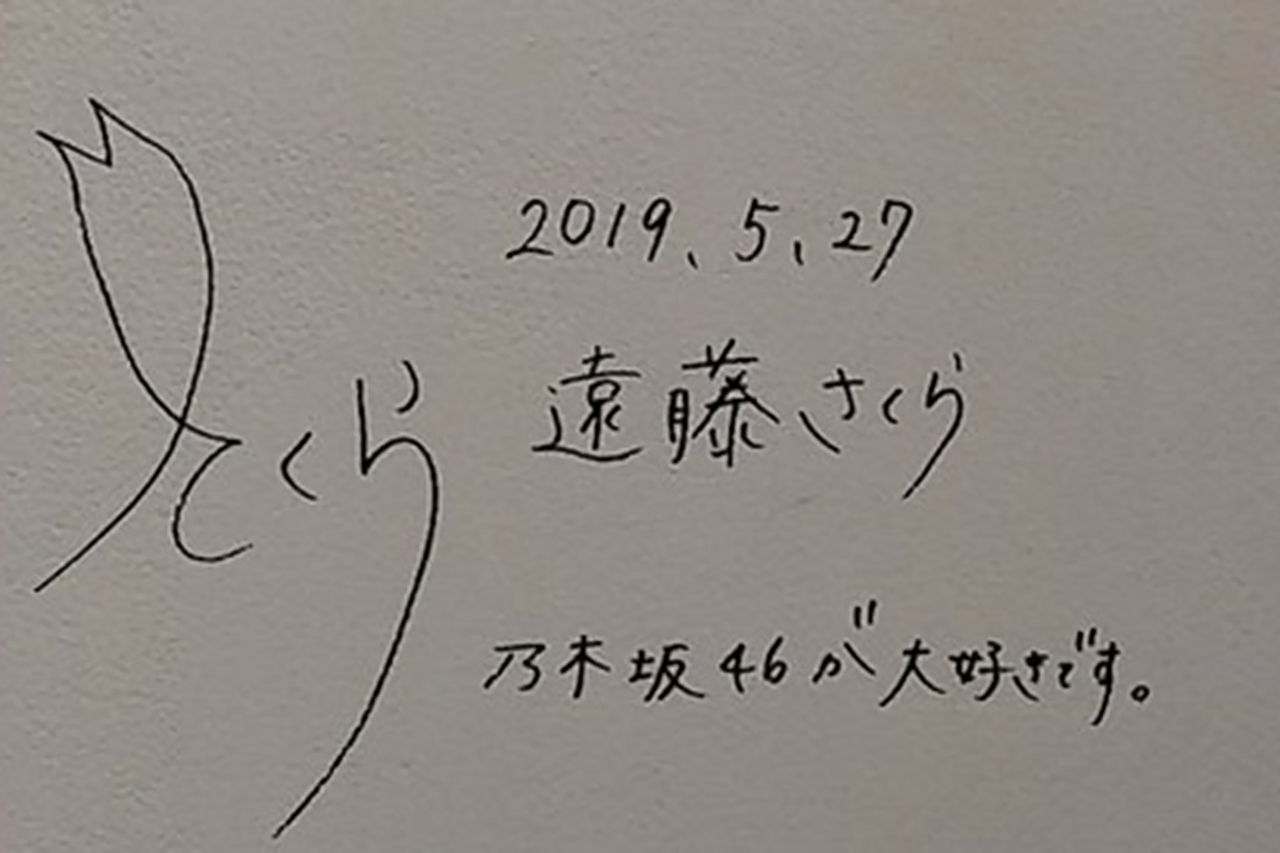 さくら
2019、5、27
遠藤さくら
乃木坂46が大好きです。